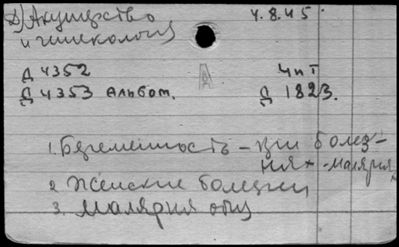 Д) Акушерство 4.8.45.
и гинекология
Д 4352 ЧиТ
Д 4353 Альбом. Д 1823.
1. Беременность – при болез-
ня - малярия
2. Женские болезни
3. Малярия общ